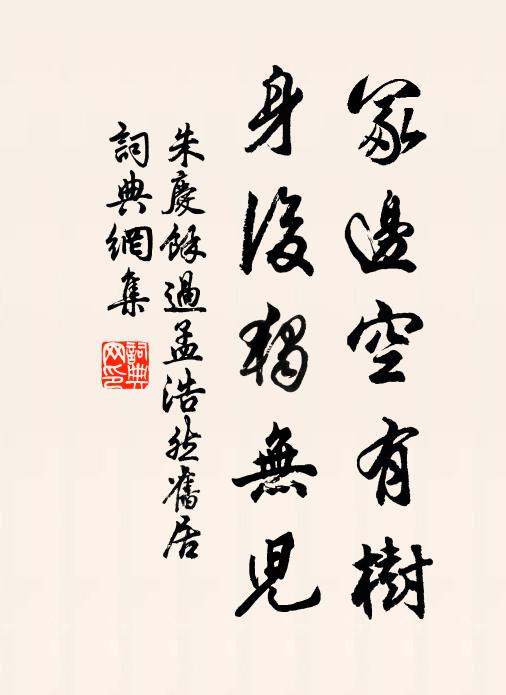 冢邊空有樹
身後獨無兒
朱慶餘過孟浩然舊居
詞典網集
詞典网印